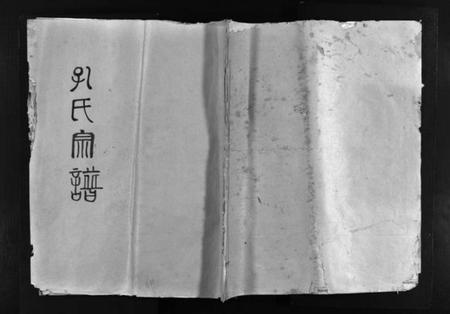 孔氏宗譜